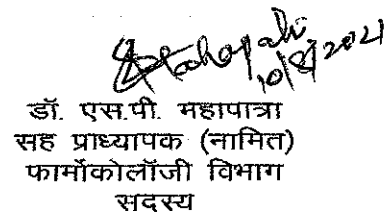 10/8/2021
डॉ. एस.पी. महापात्रा
सह प्राध्यापक (नामित)
फार्माकोलॉजी विभाग
सदस्य